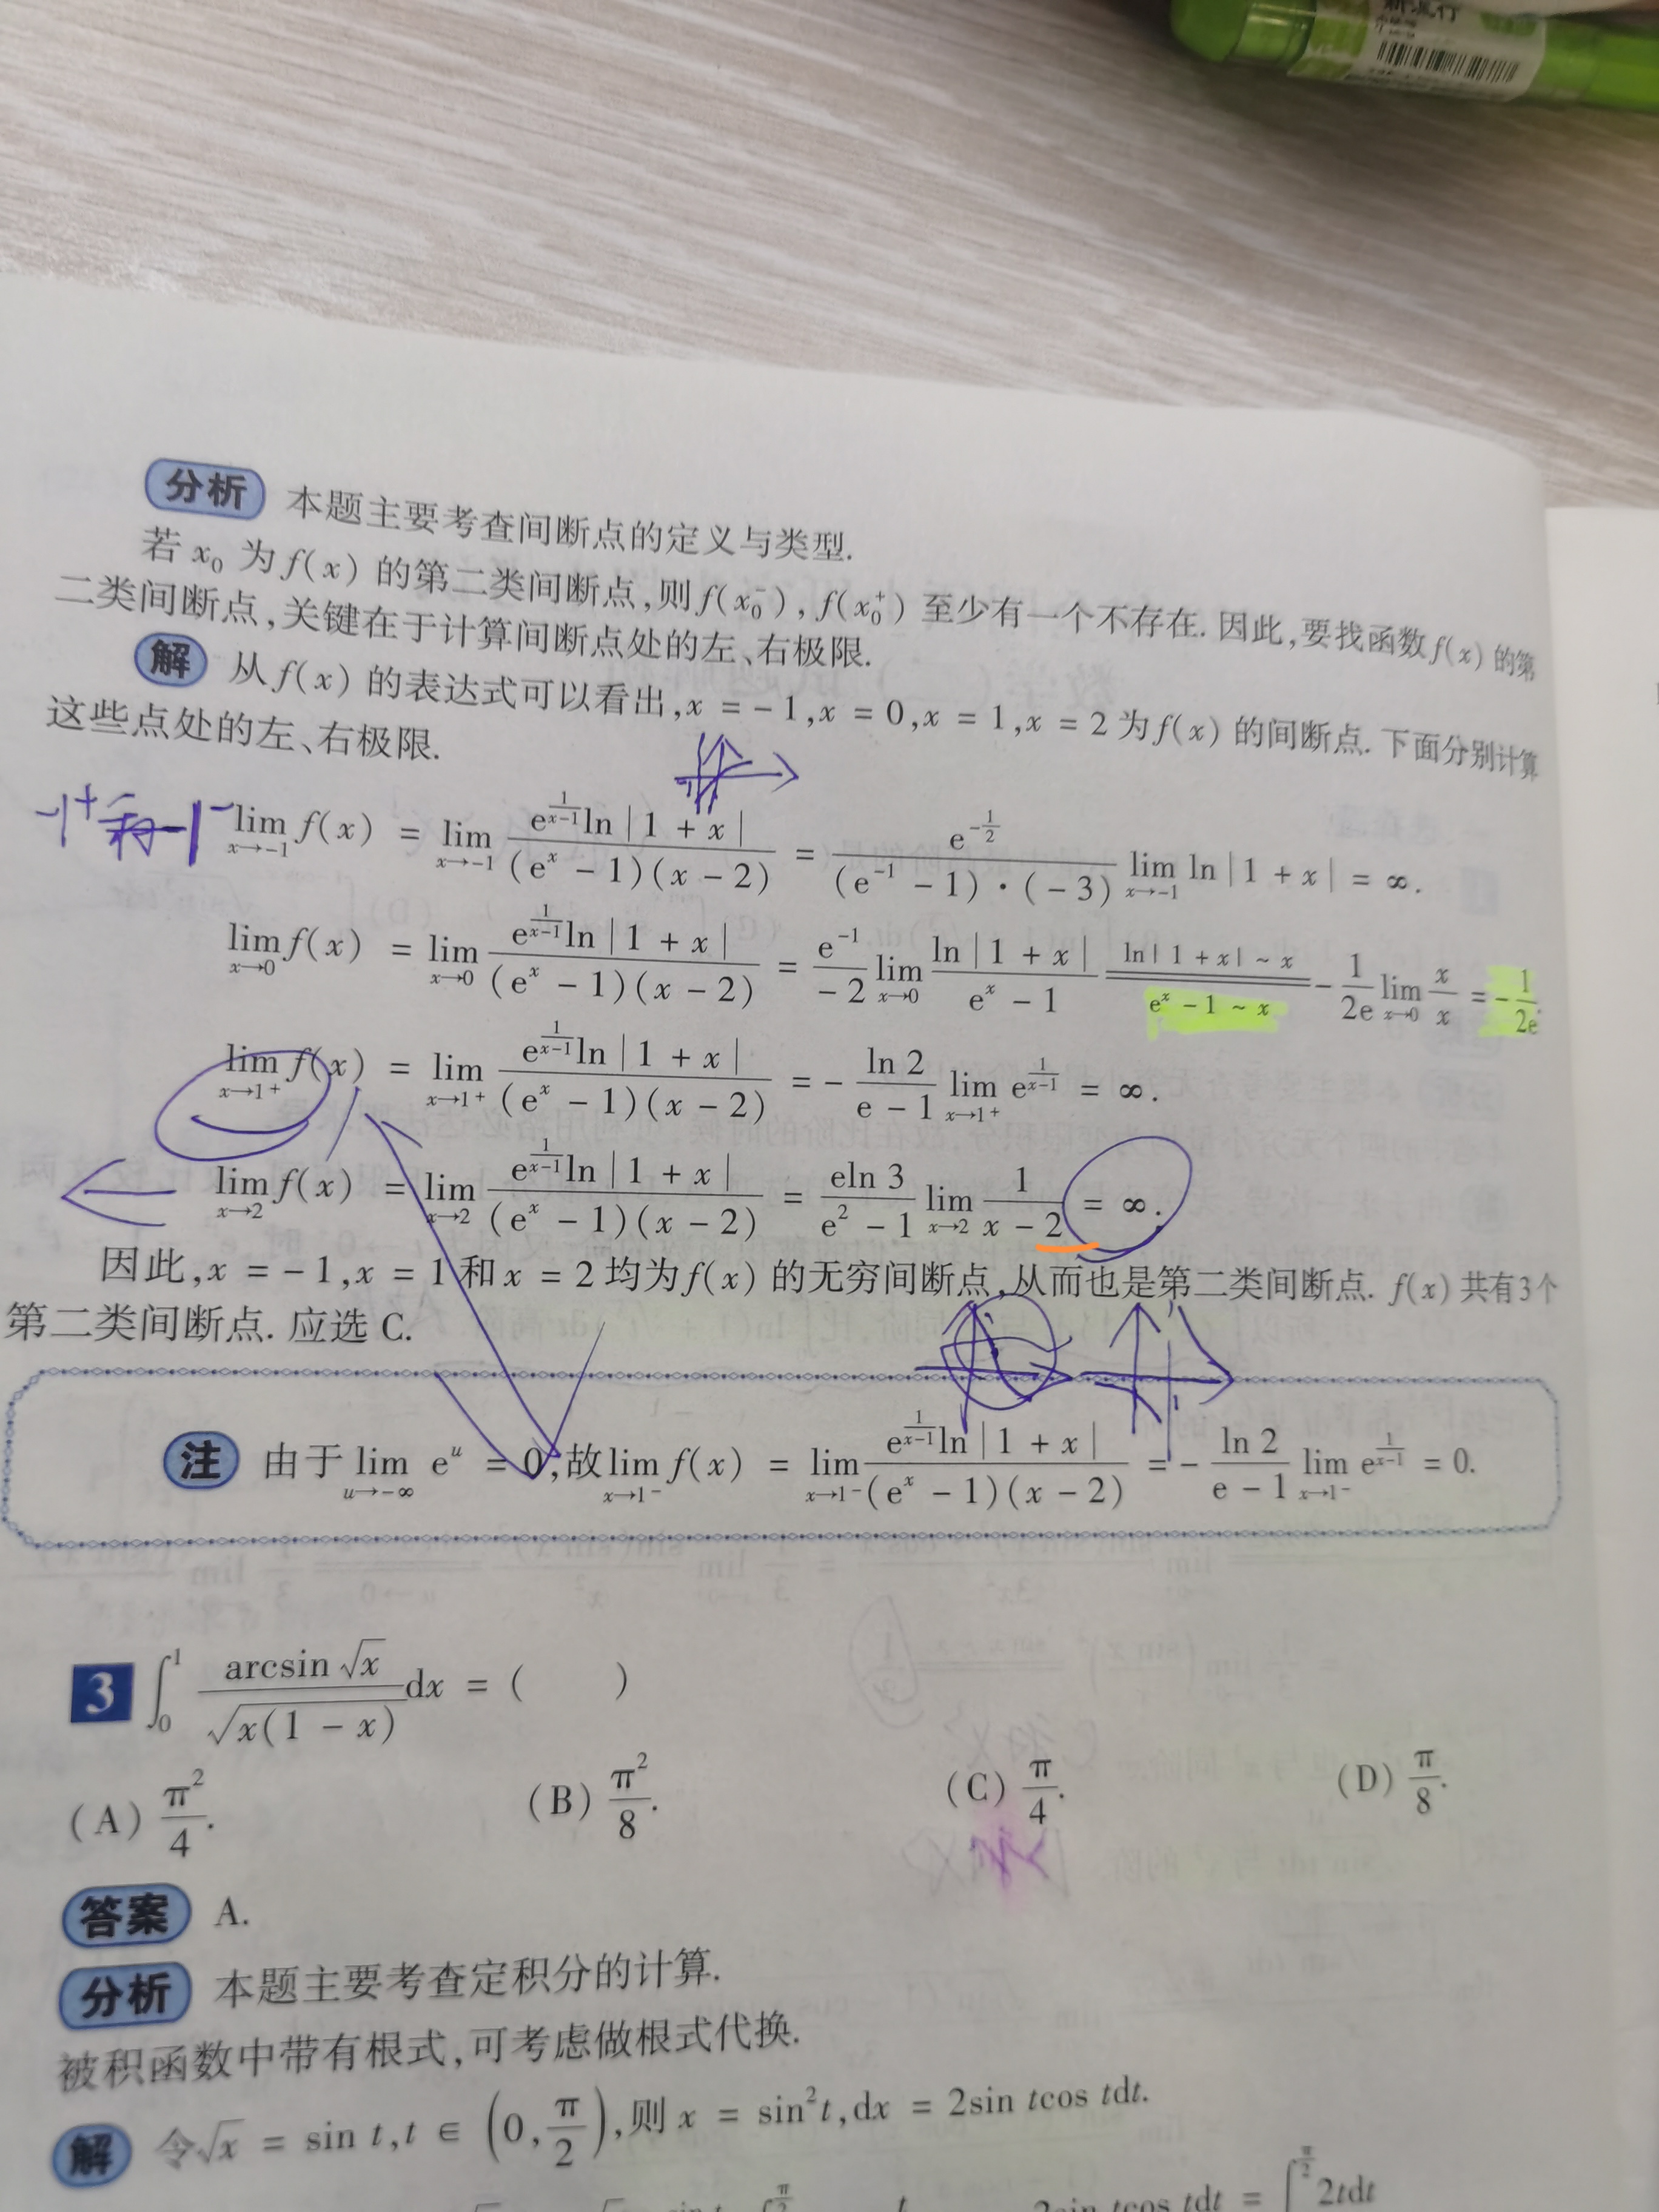 分析 本题主要考查间断点的定义与类型.
若 x₀ 为 f(x) 的第二类间断点,则 f(x₀⁻), f(x₀⁺) 至少有一个不存在. 因此,要找函数 f(x) 的第
二类间断点,关键在于计算间断点处的左、右极限.
解 从 f(x) 的表达式可以看出,x = -1,x = 0,x = 1,x = 2 为 f(x) 的间断点. 下面分别计算
这些点处的左、右极限.
-1⁺ 和 -1⁻ lim_{x→-1} f(x) = lim_{x→-1} \frac{e^{\frac{1}{x-1}} ln|1 + x|}{(e^x - 1)(x - 2)} = \frac{e^{-\frac{1}{2}}}{(e^{-1} - 1)·(-3)} lim_{x→-1} ln|1 + x| = ∞.
lim_{x→0} f(x) = lim_{x→0} \frac{e^{\frac{1}{x-1}} ln|1 + x|}{(e^x - 1)(x - 2)} = \frac{e^{-1}}{-2} lim_{x→0} \frac{ln|1 + x|}{e^x - 1} \xlongequal[e^x - 1 ~ x]{ln|1 + x| ~ x} -\frac{1}{2e} lim_{x→0} \frac{x}{x} = -\frac{1}{2e}.
lim_{x→1⁺} f(x) = lim_{x→1⁺} \frac{e^{\frac{1}{x-1}} ln|1 + x|}{(e^x - 1)(x - 2)} = -\frac{ln 2}{e - 1} lim_{x→1⁺} e^{\frac{1}{x-1}} = ∞.
lim_{x→2} f(x) = lim_{x→2} \frac{e^{\frac{1}{x-1}} ln|1 + x|}{(e^x - 1)(x - 2)} = \frac{eln 3}{e² - 1} lim_{x→2} \frac{1}{x - 2} = ∞.
因此,x = -1,x = 1 和 x = 2 均为 f(x) 的无穷间断点,从而也是第二类间断点. f(x) 共有3个
第二类间断点. 应选 C.
注 由于 lim_{u→-∞} e^u = 0,故 lim_{x→1⁻} f(x) = lim_{x→1⁻} \frac{e^{\frac{1}{x-1}} ln|1 + x|}{(e^x - 1)(x - 2)} = -\frac{ln 2}{e - 1} lim_{x→1⁻} e^{\frac{1}{x-1}} = 0.
3 ∫_0^1 \frac{arcsin √x}{\sqrt{x(1 - x)}} dx = (  )
(A) \frac{π²}{4}. (B) \frac{π²}{8}. (C) \frac{π}{4}. (D) \frac{π}{8}.
答案 A.
分析 本题主要考查定积分的计算.
被积函数中带有根式,可考虑做根式代换.
解 令 √x = sin t,t ∈ (0, \frac{π}{2}),则 x = sin²t,dx = 2sin tcos tdt.
2sin tcos tdt = ∫^{\frac{π}{2}} 2tdt